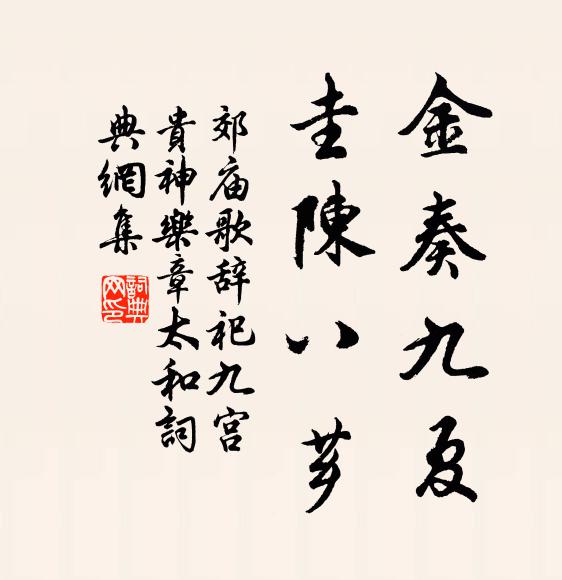 金奏九夏
圭陳八芗
郊庙歌辞祀九宫
貴神樂章太和詞
典網集
詞典
网印